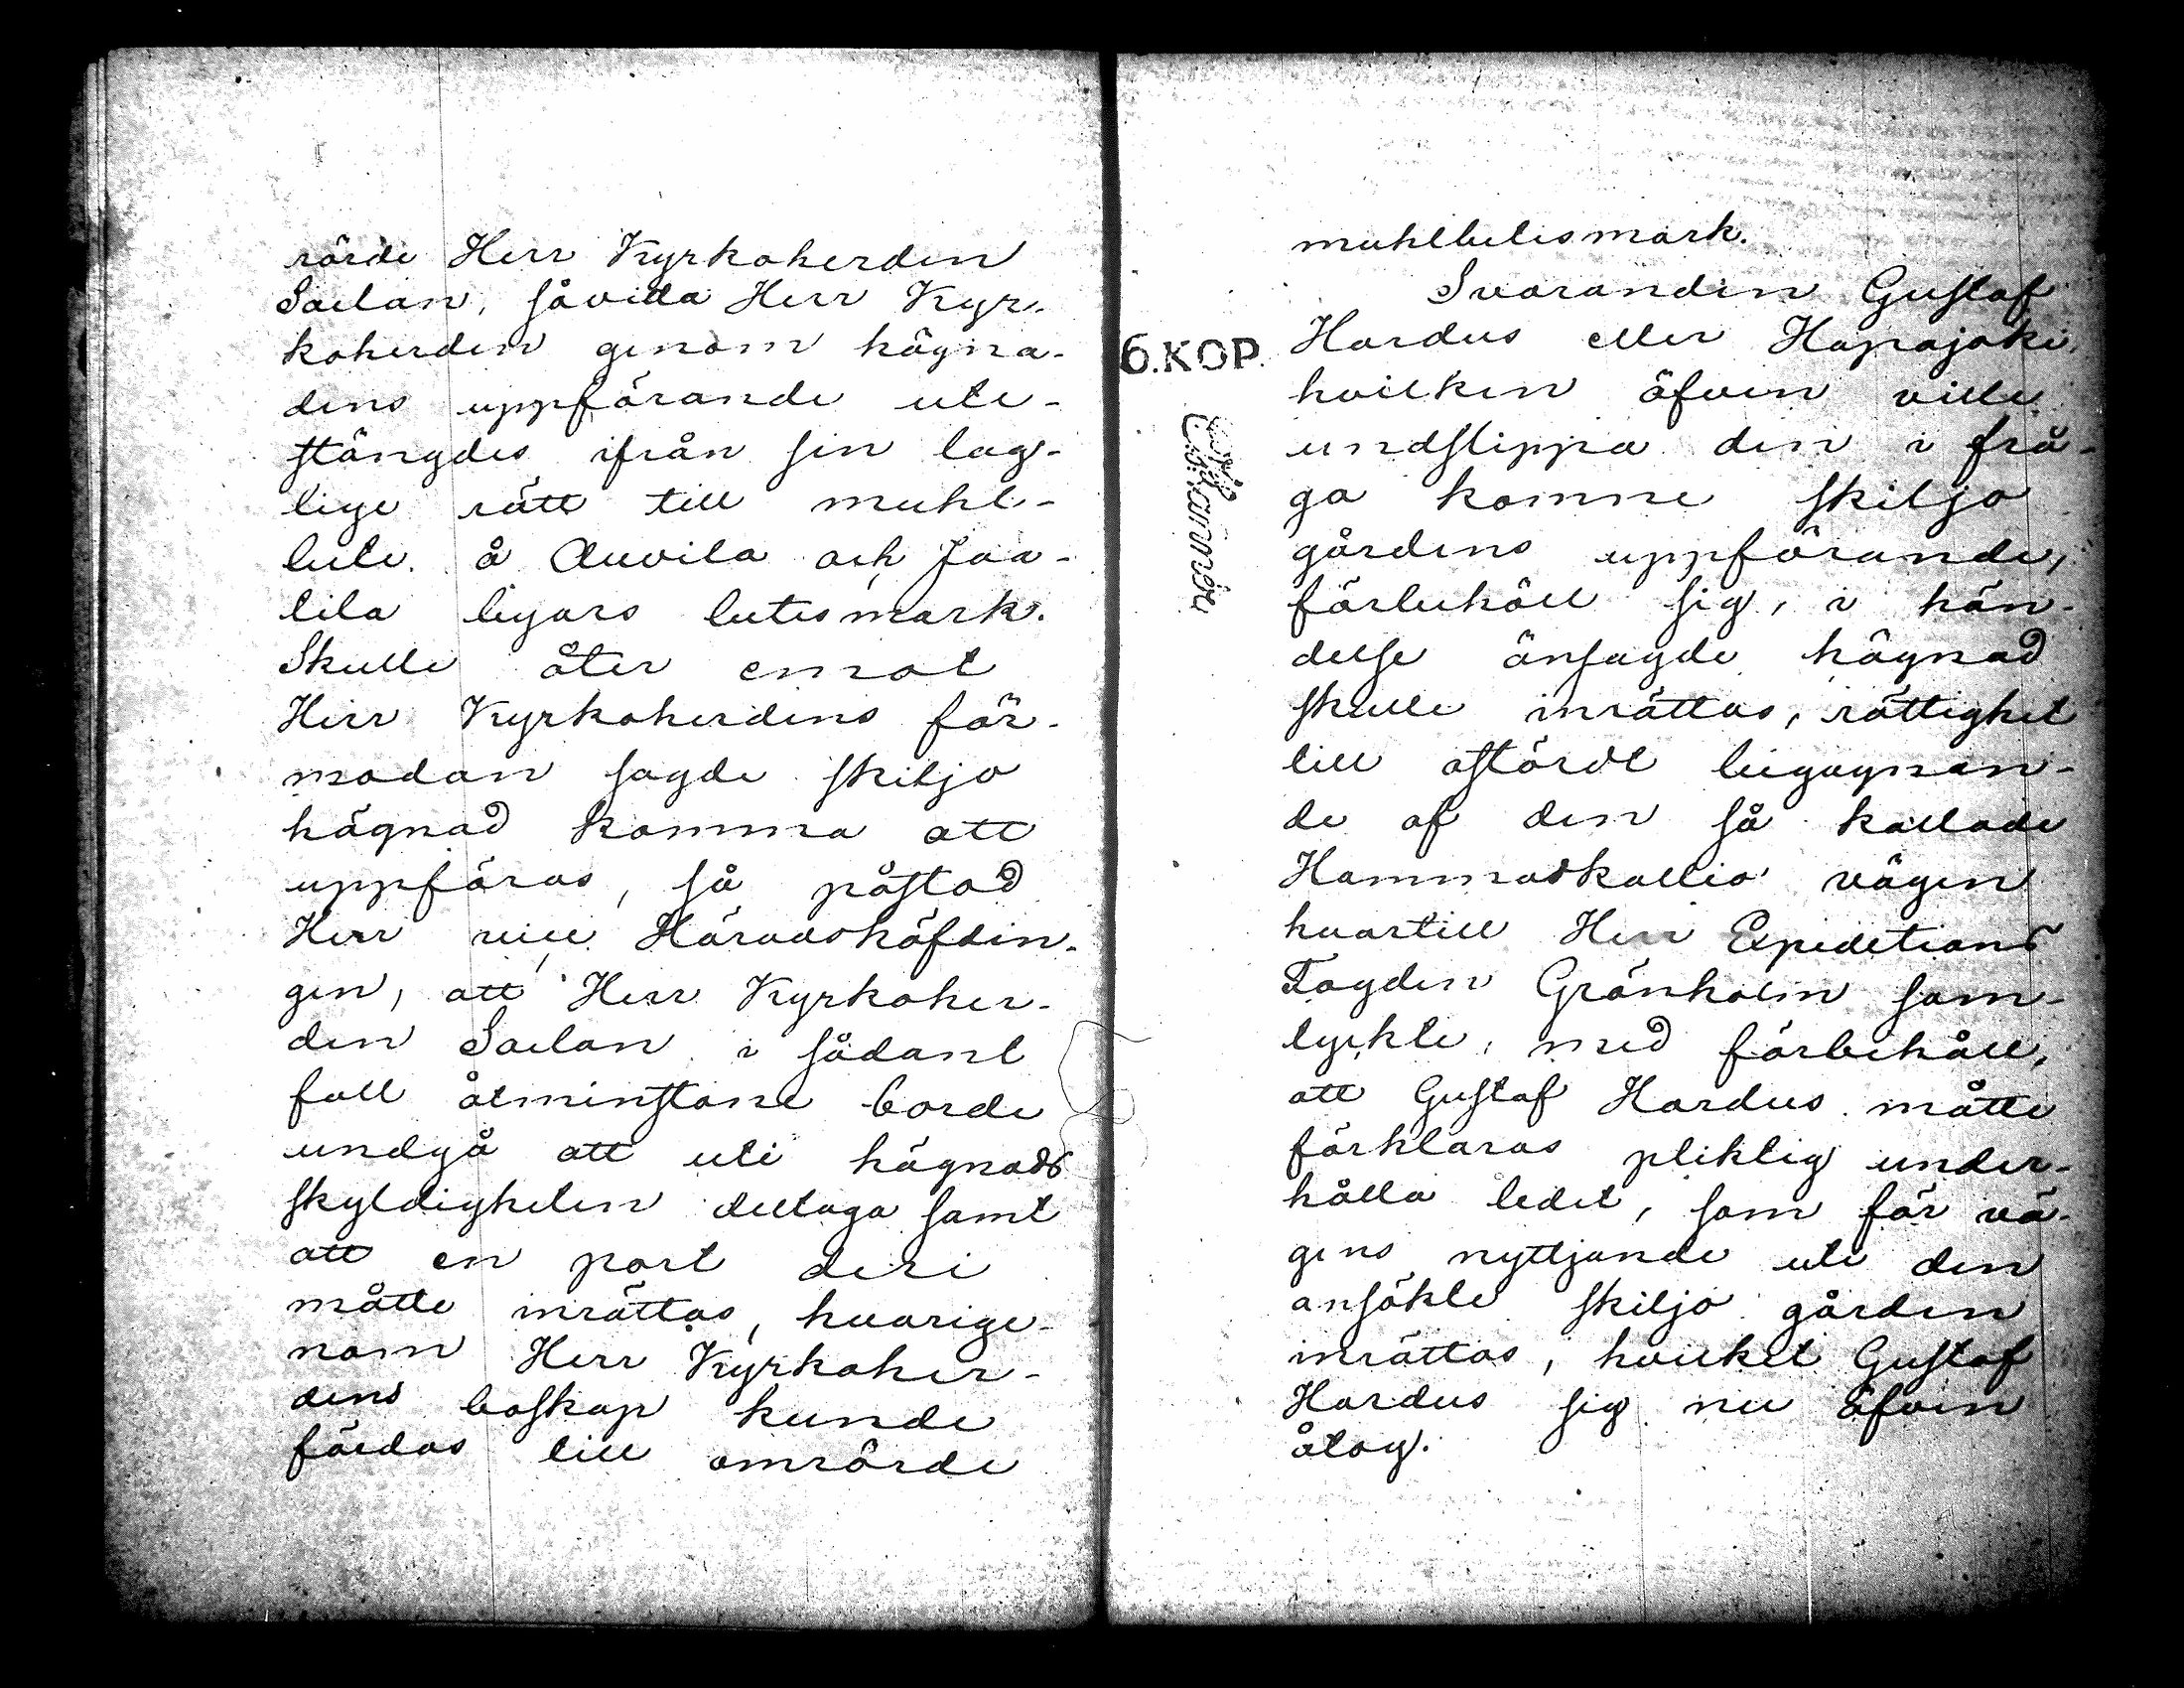 rörde Herr Kyrkoherden
Sacklan, såvida Herr Kyr-
koherden genom hägna-
dens uppförande ute-
stängdes ifrån sin lag-
lige rätt till muhl-
bete å Auvila och Jaa-
tila byars betesmark.
Skulle åter emot
Herr Kyrkoherdens för-
modan sagde skiljo
hägnad komma att
uppföras, så påstod
Herr vice Häradshöfdin-
gen, att Herr Kyrkoher-
den Saclan i sådant
fall åtminstone borde
undgå att uti hägnads
skyldigheten deltaga samt
att en port deri
måtte inrättas, hvarige-
nom Herr Kyrkoher-
dens boskap kunde
färdas till omrörde
muhlbetesmark.
Svaranden Gustaf
6.KOP. Hardus eller Haparjoki,
hvilken äfven ville
undslippa den i frå-
ga komne skiljo
gårdens uppförande,
förbehöll sig, i hän-
delse änsagde hägnad
skulle inrättas, rättighet
till ostördt begagnan-
de af den så kallade
Hammaskallio vägen
hvartill Herr Expeditions
Fogden Grönholm sam-
tyckte, med förbehåll,
att Gustaf Hardus måtte
förklaras pliktig under-
hålla ledet, som för vä-
gens nyttjande uti den
ansökte skiljo gården
inrättas, hvilket Gustaf
Hardus sig nu äfven
åtog.